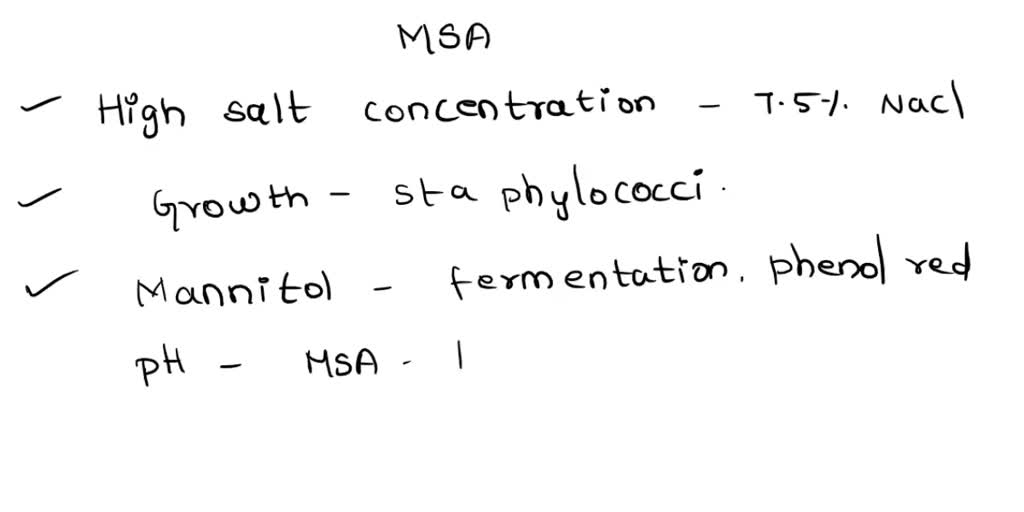 MSA
High salt concentration - 7.5% Nacl
Growth - sta phylococci.
Mannitol - fermentation, phenol red
pH - MSA - |